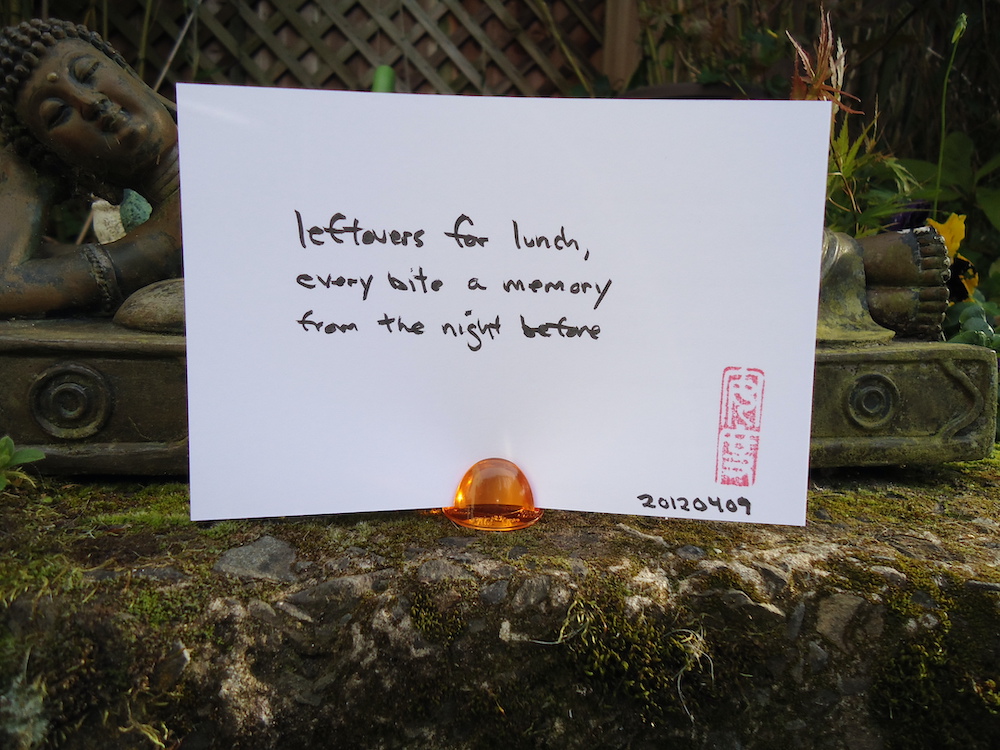 leftovers for lunch,
every bite a memory
from the night before
20120409